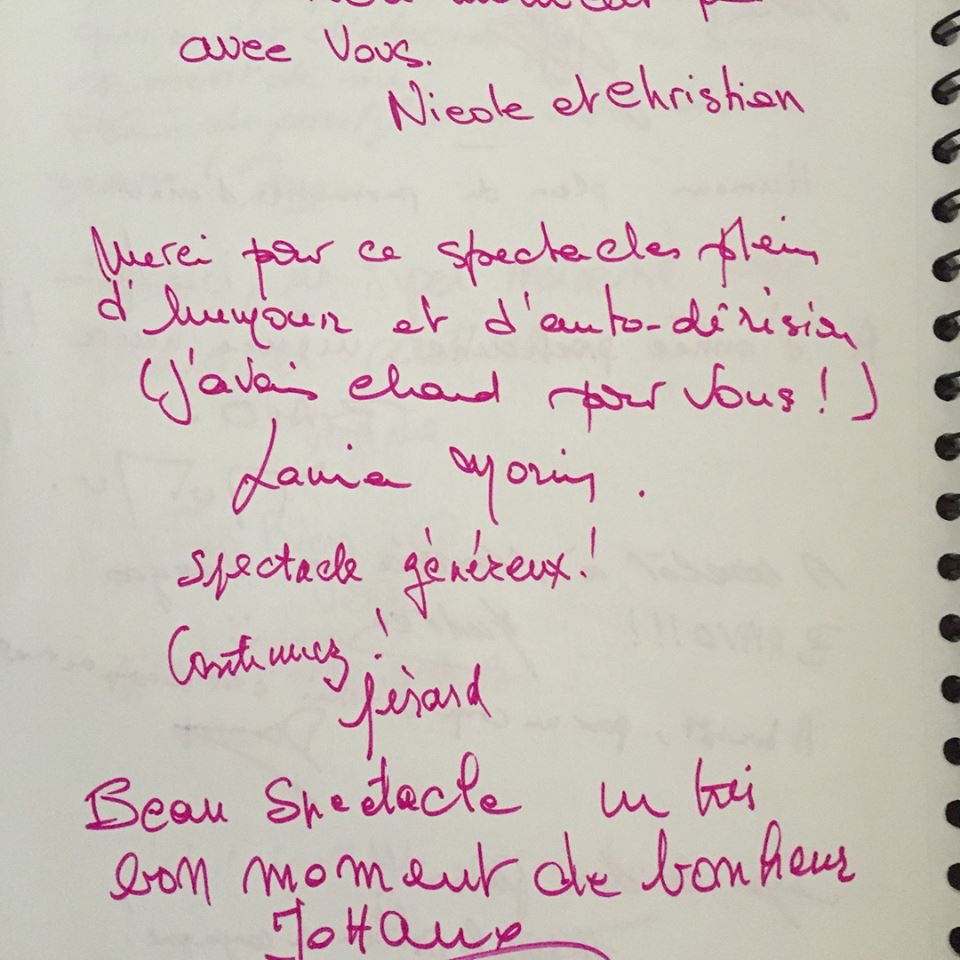 avec Vous.
Nicole et Christian
Merci pour ce spectacles plein
d'humour et d'auto-dérision
(j'avais chaud pour vous!)
Morin.
spectacle généreux!
Continuez!
Gérard
Beau Spectacle un très
bon moment de bonheur